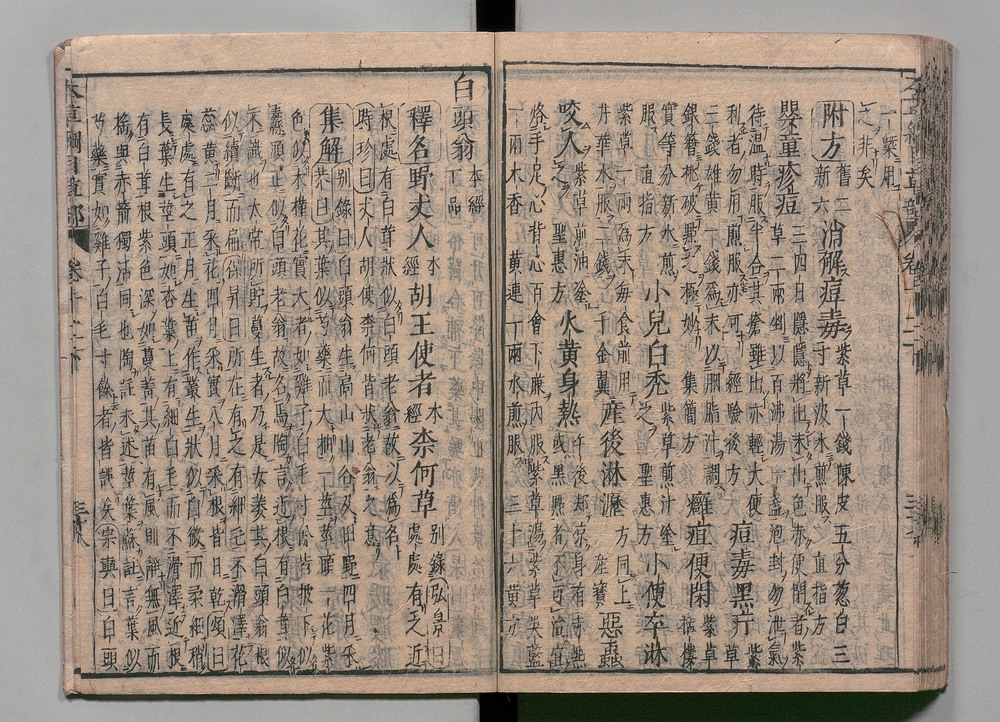 之非矣
附方舊二新六消解痘毒紫草一錢陳皮五分葱白三寸新汲水煎服直指方
嬰童疹痘三四日隱隱將出未出色赤便閉者紫草二兩剉以百沸湯一盞泡封勿泄氣
待溫時服半合其瘡雖出亦輕大便利者勿用煎服亦可經驗後方痘毒黑疔紫草
三錢雄黃一錢爲末以胭脂汁調銀簪挑破點之極妙集簡方癰疽便閉紫草栝樓
實等分新水煎服直指方小兒白禿紫草煎汁塗之聖惠方小便卒淋
紫草一兩爲末每食前用井華水服二錢千金翼產後淋瀝方同上產寶惡蟲
咬人紫草煎油塗之聖惠方火黃身熱午後却凉身有赤點或黑點者不可治宜
烙手足心背心百會下廉內服紫草湯紫草吳藍
一兩木香黃連一兩水煎服三十六黃方
白頭翁本經下品
釋名野丈人本經胡王使者本經柰何草別錄弘景曰處處有之近
根處有白茸狀似白頭老翁故以爲名
時珍曰丈人胡使柰何皆狀老翁之意
集解別錄曰白頭翁生高山山谷及田野四月采恭曰其葉似芍藥而大抽一莖莖頭一花紫
色似木槿花實大者如雞子白毛寸餘皆披下似
纛頭正似白頭老翁故名焉陶言近根有白茸似
不識也太常所貯蔓生者乃是女萎其白頭翁根
似續斷而扁保昇曰所在有之有細毛不滑澤花
蕊黃二月采花四月采實八月采根皆日乾頌曰
處處有之正月生苗作叢生狀似白薇而柔細稍
長葉生莖頭如杏葉上有細白毛而不滑澤近根
有白茸根紫色深如蔓菁其苗有風則靜無風而
搖與赤箭獨活同也陶註未述莖葉蘇註言葉似
芍藥實如雞子白毛寸餘者皆誤矣宗奭曰白頭
本草綱目草部 卷十二下 三十八